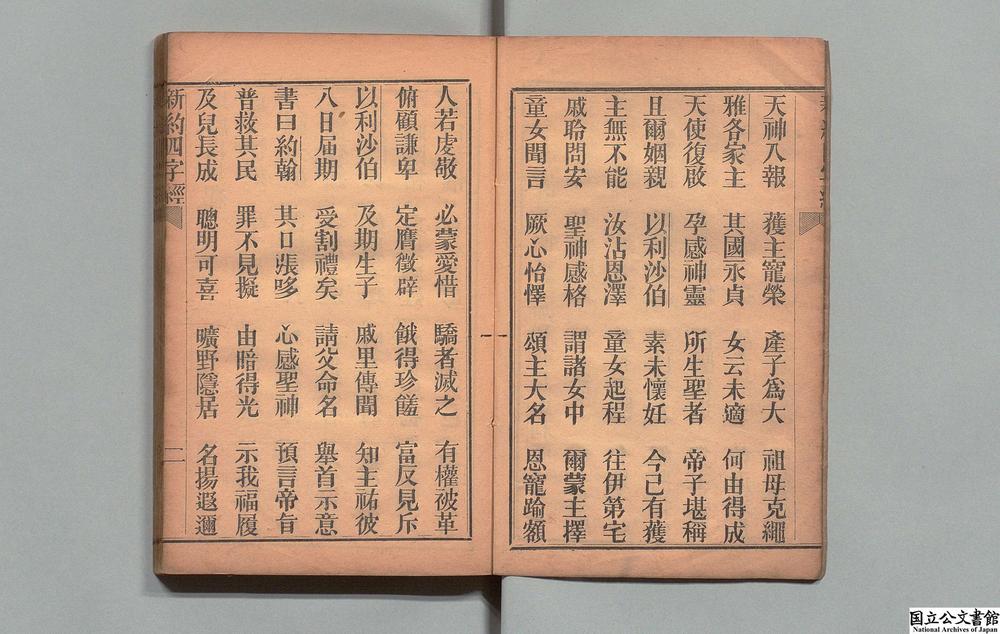 天神入報 獲主寵榮 產子爲大 祖母克繩
雅各家主 其國永貞 女云未適 何由得成
天使復啟 孕感神靈 所生聖者 帝子堪稱
且爾姻親 以利沙伯 素未懷妊 今已有獲
主無不能 汝沾恩澤 童女起程 往伊第宅
戚聆問安 聖神感格 謂諸女中 爾蒙主擇
童女聞言 厥心怡懌 頌主大名 恩寵踰額
人若虔敬 必蒙愛惜 驕者滅之 有權被革
俯顧謙卑 定膺徵辟 餓得珍饈 富反見斥
以利沙伯 及期生子 戚里傳聞 知主祐彼
八日届期 受割禮矣 請父命名 舉首示意
書曰約翰 其口張哆 心感聖神 預言帝旨
普救其民 罪不見擬 由暗得光 示我福履
及兒長成 聰明可喜 曠野隱居 名揚遐邇
新約四字經 二
国立公文書館
National Archives of Japan